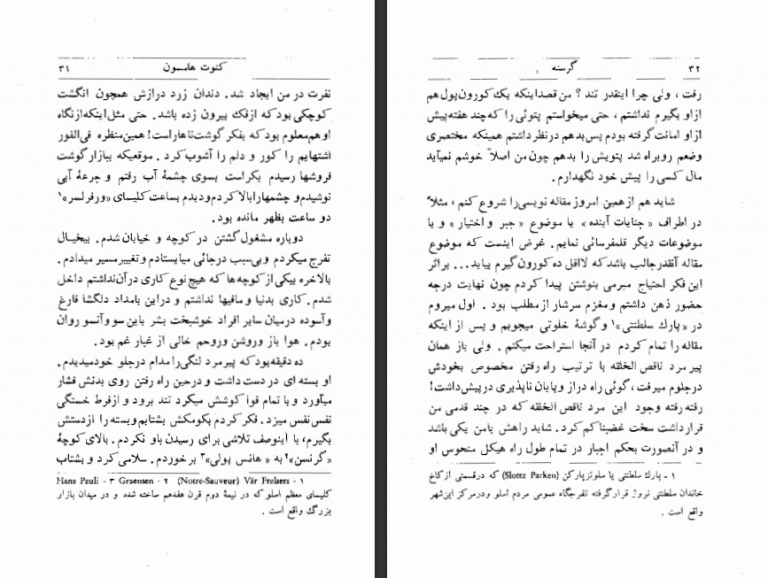 کنوت هامسون ۳۱
نفرت در من ایجاد شد. دندان زرد درازش همچون انگشت
کوچکی بود که از فک بیرون زده باشد. حتی مثل اینکه از نگاه
او هم معلوم بود که بفکر گوشت ناهار است! همین منظره فی‌الفور
اشتهایم را کور و دلم را آشوب کرد. موقعیکه ببازار گوشت
فروشها رسیدم یکراست بسوی چشمهٔ آب رفتم و جرعهٔ آبی
نوشیدم و چشمها را بالا کردم و دیدم بساعت کلیسای «ور فرلسر»۱
دو ساعت بظهر مانده بود.
دوباره مشغول گشتن در کوچه و خیابان شدم. بیخیال
تفرج میکردم و بی‌سبب در جائی میایستادم و تغییر مسیر میدادم.
بالاخره بیکی از کوچه‌ها که هیچ نوع کاری در آن نداشتم داخل
شدم. کاری بدنیا و مافیها نداشتم و در این بامداد دلگشا فارغ
و آسوده در میان سایر افراد خوشبخت بشر باین سو و آنسو روان
بودم. هوا باز و روشن و روحم خالی از غبار غم بود.
ده دقیقه بود که پیرمرد لنگی را مدام در جلو خود میدیدم.
او بسته ای در دست داشت و در حین راه رفتن روی بدنش فشار
میآورد و با تمام قوا کوشش میکرد تند برود و از فرط خستگی
نفس نفس میزد. فکر کردم بکومکش بشتابم و بسته را از دستش
بگیرم، با اینوصف تلاشی برای رسیدن باو نکردم. بالای کوچهٔ
«گرنسن»۲ به «هانس پولی»۳ برخوردم. سلامی کرد و بشتاب
۱ - Vår Frelsers (Notre-Sauveur) ۲ - Graensen ۳ - Hans Pauli
کلیسای معظم اسلو که در نیمهٔ دوم قرن هفدهم ساخته شده و در میدان بازار
بزرگ واقع است.
۳۲ گرسنه
رفت، ولی چرا اینقدر تند؟ من قصد اینکه یک کورون پول هم
از او بگیرم نداشتم، حتی میخواستم پتوئی را که چند هفته پیش
از او امانت گرفته بودم پس بدهم در نظر داشتم همینکه مختصری
وضعم روبراه شد پتویش را بدهم چون من اصلاً خوشم نمیآید
مال کسی را پیش خود نگهدارم.
شاید هم از همین امروز مقاله نویسی را شروع کنم، مثلاً
در اطراف «جنایات آینده» یا موضوع «جبر و اختیار» و یا
موضوعات دیگر قلمفرسائی نمایم. غرض اینست که موضوع
مقاله آنقدر جالب باشد که لااقل ده کورون گیرم بیاید... براثر
این فکر احتیاج مبرمی بنوشتن پیدا کردم چون نهایت درجه
حضور ذهن داشتم و مغزم سرشار از مطلب بود. اول میروم
در «پارک سلطنتی»۱ و گوشهٔ خلوتی میجویم و پس از اینکه
مقاله را تمام کردم در آنجا استراحت میکنم. ولی باز همان
پیر مرد ناقص الخلقه با ترتیب راه رفتن مخصوص بخودش
در جلوم میرفت، گوئی راه دراز و پایان ناپذیری در پیش داشت!
رفته رفته وجود این مرد ناقص الخلقه که در چند قدمی من
قرار داشت سخت غضبناکم کرد. شاید راهش بامن یکی باشد
و در آنصورت بحکم اجبار در تمام طول راه هیکل منحوس او
۱ - پارک سلطنتی یا سلوتزپارکن (Slottz Parken) که در قسمتی از کاخ
خاندان سلطنتی نروژ قرار گرفته تفرجگاه عمومی مردم اسلو و در مرکز این شهر
واقع است.